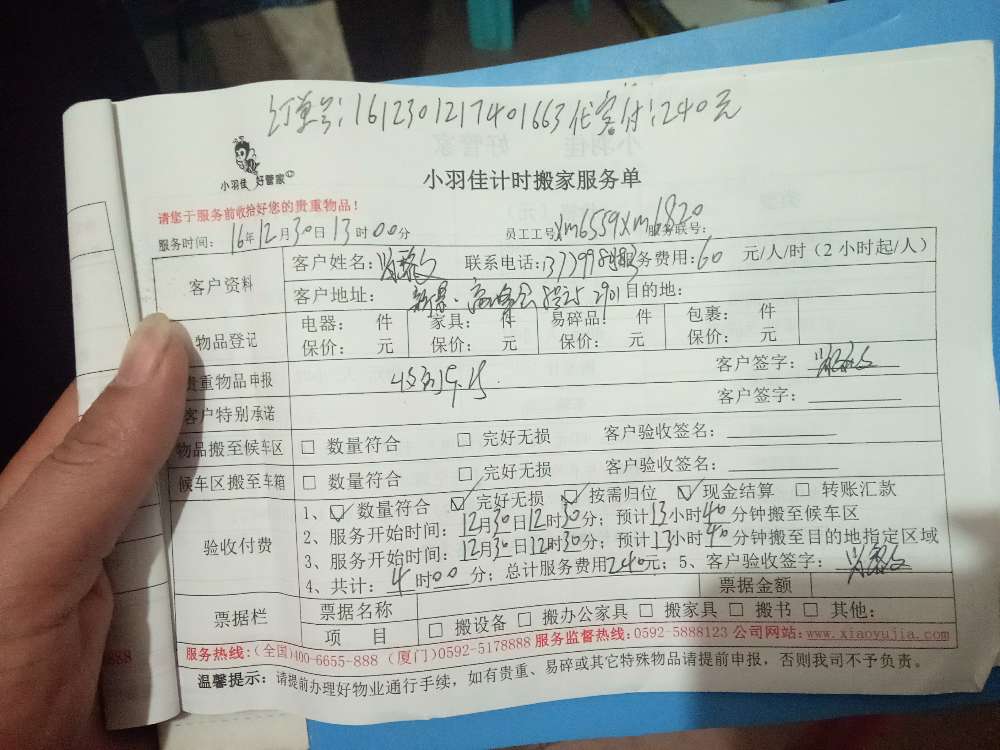 订单号:1612301217401663代客付:240元
小羽佳 好管家
小羽佳计时搬家服务单
请您于服务前收拾好您的贵重物品!
服务时间: 16年12月30日13时00分 员工工号xm6559xm6820服务联号:
客户资料 客户姓名: 联系电话: 服务费用:60 元/人/时(2小时起/人)
客户地址: 2901目的地:
物品登记 电器: 件 家具: 件 易碎品: 件 包裹: 件
保价: 元 保价: 元 保价: 元 保价: 元
贵重物品申报 客户签字:
客户特别承诺 客户签字:
物品搬至候车区 □ 数量符合 □ 完好无损 客户验收签名:
候车区搬至车箱 □ 数量符合 □ 完好无损 客户验收签名:
验收付费 1、☑ 数量符合 ☑ 完好无损 ☑ 按需归位 ☑ 现金结算 □ 转账汇款
2、服务开始时间:12月30日12时30分;预计13小时40分钟搬至候车区
3、服务开始时间:12月30日12时30分;预计13小时40分钟搬至目的地指定区域
4、共计:4时00分;总计服务费用240元;5、客户验收签字:
票据栏 票据名称 票据金额
项 目 □ 搬设备 □ 搬办公家具 □ 搬家具 □ 搬书 □ 其他:
服务热线:(全国)400-6655-888 (厦门)0592-5178888 服务监督热线:0592-5888123 公司网站:www.xiaoyujia.com
温馨提示:请提前办理好物业通行手续,如有贵重、易碎或其它特殊物品请提前申报,否则我司不予负责。